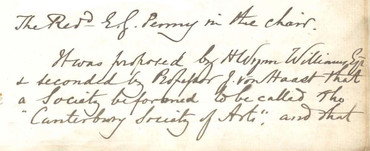 The Revd E.G. Penny in the chair.
It was proposed by H Wynn Williams Esqr
& seconded by Professor J. von Haast that
a Society be formed to be called the
"Canterbury Society of Art"; and that